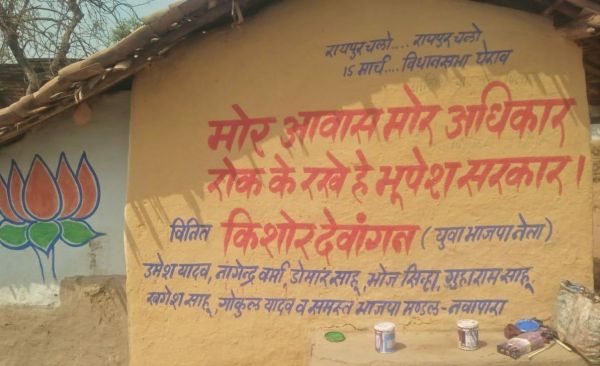 रायपुर चलो.... रायपुर चलो
15 मार्च.... विधानसभा घेराव
मोर आवास मोर अधिकार
रोक के रखे हे भूपेश सरकार।
विनित किशोर देवांगन (युवा भाजपा नेता)
उमेश यादव, नागेन्द्र वर्मा, डोमार साहू, भोज सिन्हा, गुहाराम साहू
खगेश साहू, गोकुल यादव व समस्त भाजपा मण्डल-नवापारा